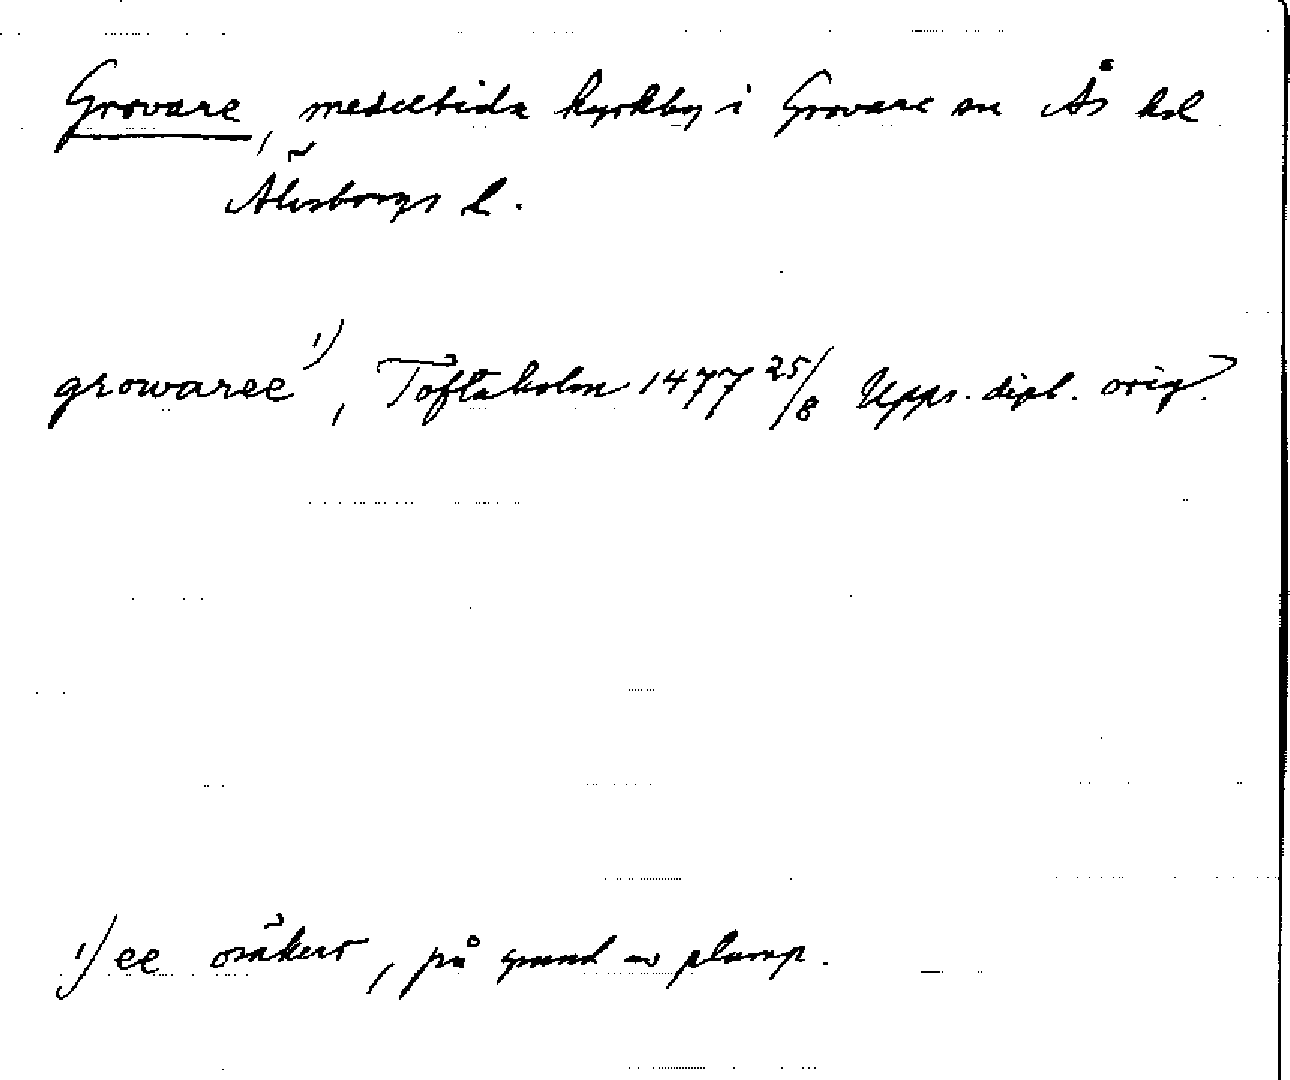 Grovare, medeltida kyrkby i Grovare sn Ås hd
Älvsborgs l.
growaree¹⁾, Toftaholm 1477 25/8 Upps. dipl. orig.
¹⁾ ee osäkert, på grund av plump.